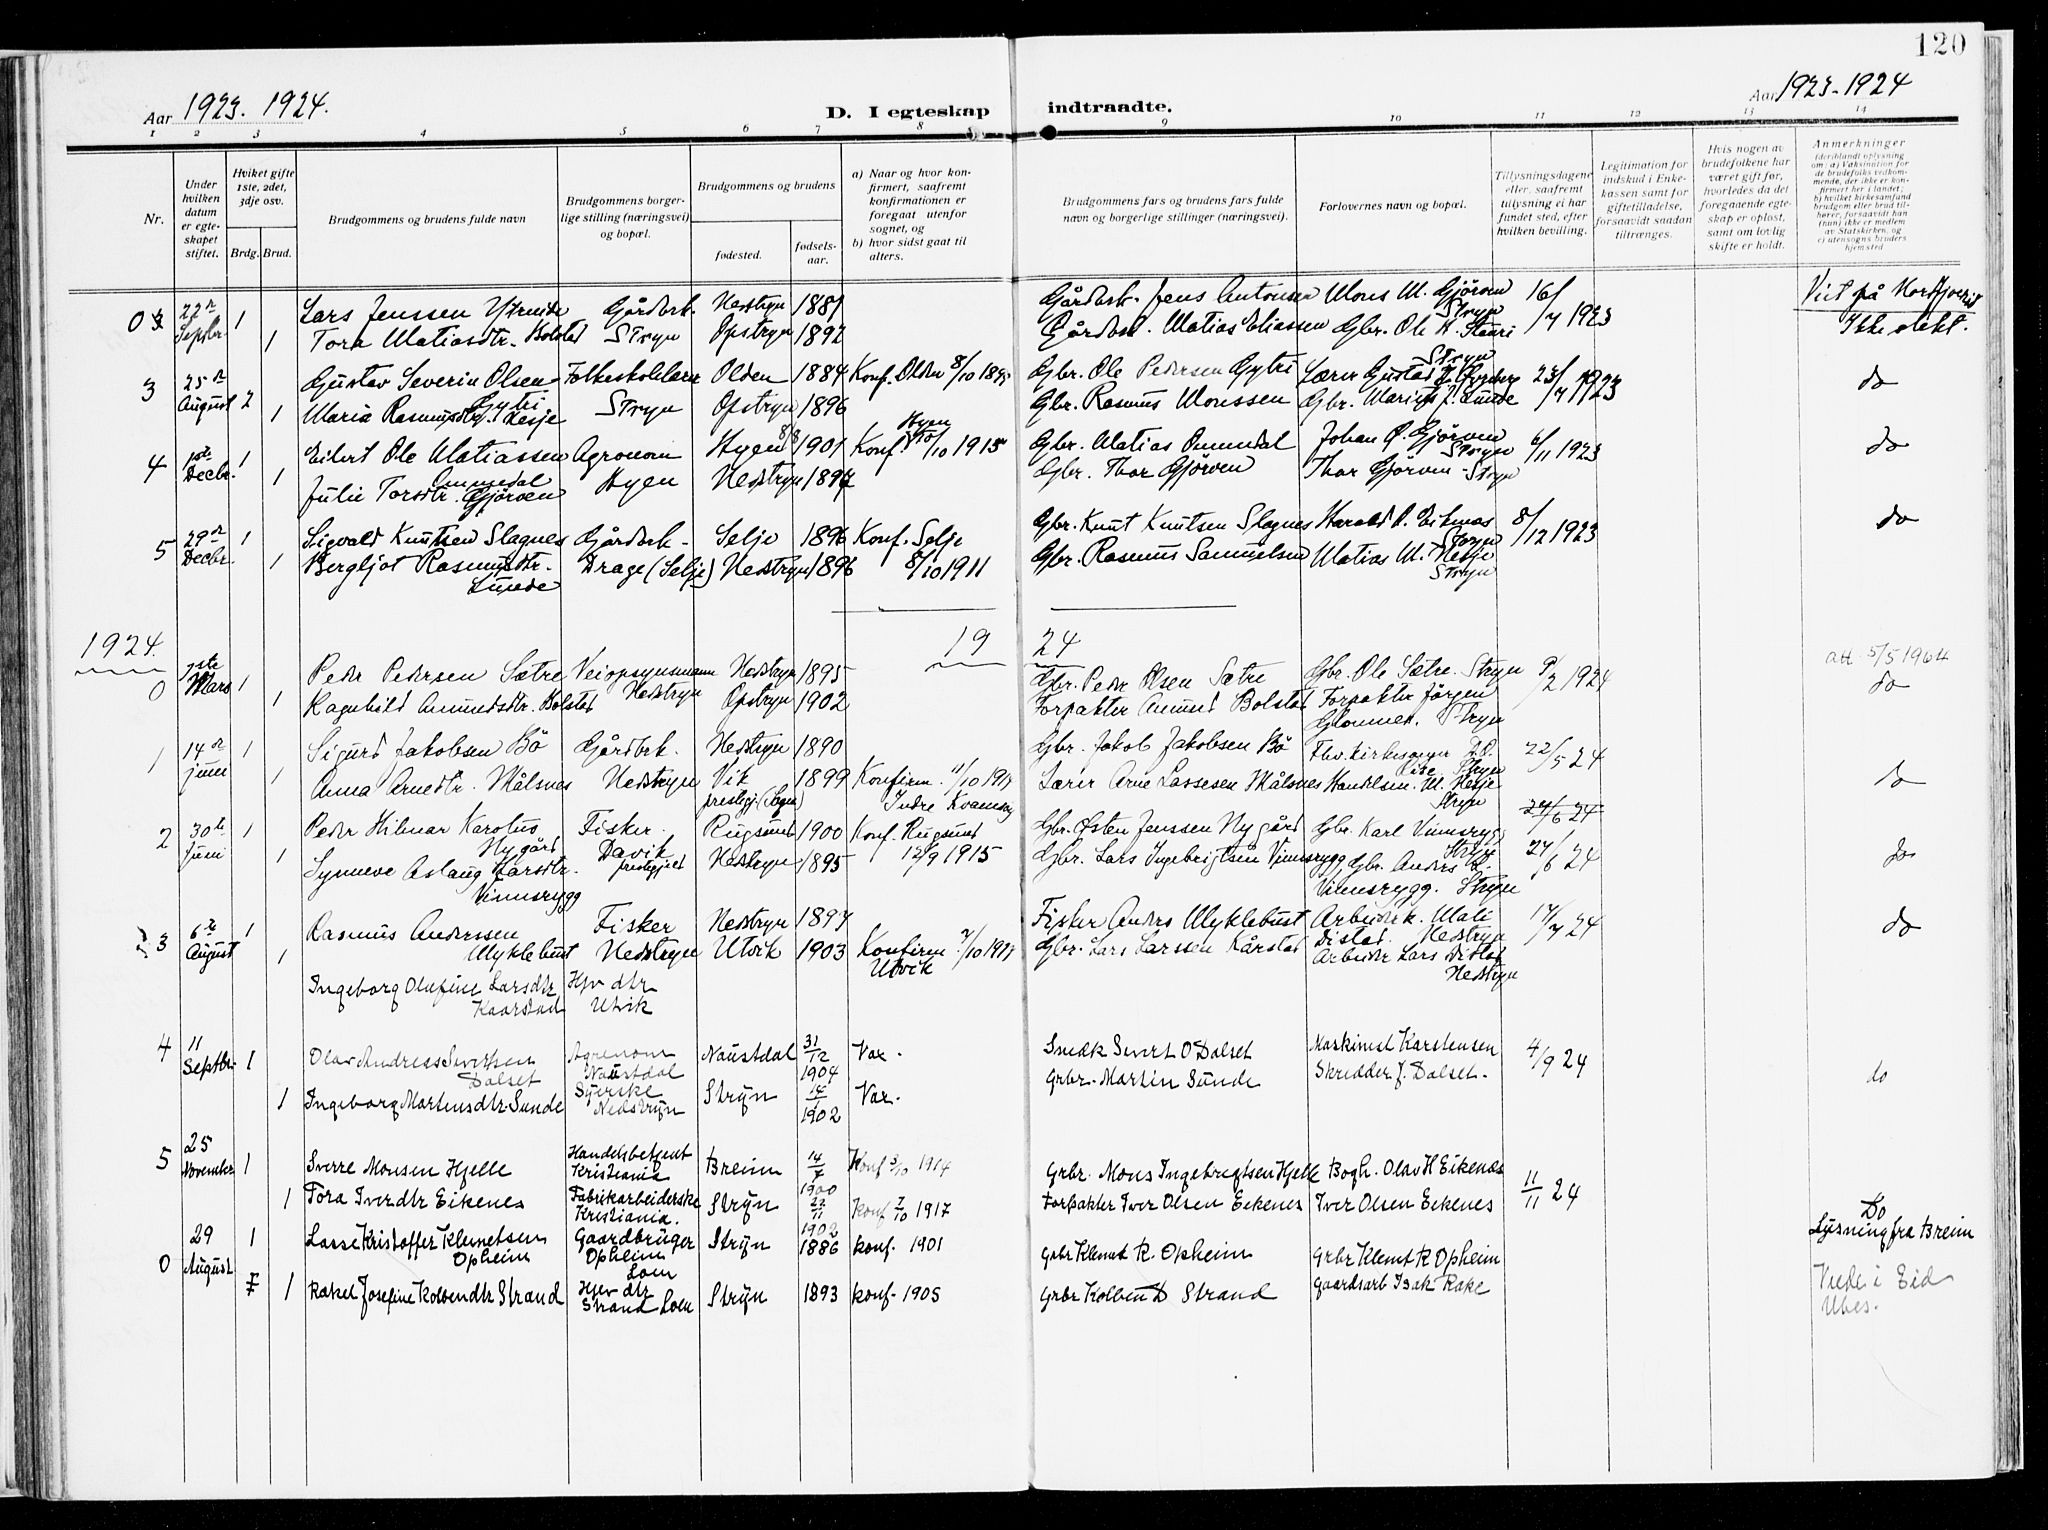 120
Aar 1923. 1924.
D. I egteskap indtraadte.
Aar 1923-1924
1 2 3 4 5 6 7 8 9 10 11 12 13 14
Nr.
Under hvilken datum er egteskapet stiftet.
Hviket gifte 1ste, 2det, 3dje osv.
Brdg. Brud.
Brudgommens og brudens fulde navn
Brudgommens borgerlige stilling (næringsvei) og bopæl.
Brudgommens og brudens
fødested.
fødselsaar.
a) Naar og hvor konfirmert, saafremt konfirmationen er foregaat utenfor sognet, og
b) hvor sidst gaat til alters.
Brudgommens fars og brudens fars fulde navn og borgerlige stillinger (næringsvei).
Forlovernes navn og bopæl.
Tillysningsdagene eller, saafremt tillysning ei har fundet sted, efter hvilken bevilling.
Legitimation for indskud i Enkekassen samt for giftetilladelse, forsaavidt saadan tiltrænges.
Hvis nogen av brudefolkene har været gift før, hvorledes da det foregaaende egteskap er opløst, samt om lovlig skifte er holdt.
Anmerkninger (deriblandt oplysning om: a) Vaksination for de brudefolks vedkommende, der ikke er konfirmert her i landet; b) hvilket kirkesamfund brudgom eller brud tilhører, forsaavidt han (hun) ikke er medlem av Statskirken, og c) utensogns bruders hjemsted
22n Septbr. 1 Lars Jenssen Ytreeide Gårdbrk. Nedstryn 1881 Gårdbrk. Jens Antonsen Mons M. Gjörven Stryn 16/7 1923 Viet på Nordfjoreid
1 Tora Matiasdtr. Bolstad Stryn Opstryn 1892 Gårdbrk. Matias Eliassen Gbr. Ole A. Stauri Ikke slekt.
3 25n August 2 Gustav Severin Olsen Gytri Folkeskolelærer Olden 1884 Konf. Olden 8/10 1899 Gbr. Ole Pedersen Gytri Lærer Gustav Stryn 23/7 1923 do
1 Maria Rasmusdtr. Nesje Stryn Opstryn 1896 Gbr. Rasmus Monssen Gbr. Marius J. Sunde
4 1ste Decbr. 1 Eilert Ole Matiassen Ommedal Agronom Hyen 8/8 1901 Konf. Hyen 10/10 1915 Gbr. Matias Ommedal Johan O. Gjörven Stryn 6/11 1923 do
1 Julie Torsdtr. Gjörven Hyen Nedstryn 1897 Gbr. Thor Gjörven Thor Gjörven - Stryn
5 29n Decbr. 1 Sigvald Knutsen Slagnes Gårdbrk. Selje 1896 Konf. Selje Gbr. Knut Knutsen Slagnes Harald R. Eikenes Stryn 8/12 1923 do
1 Bergljot Rasmusdtr. Sunde Drage (Selje) Nedstryn 1896 8/10 1911 Gbr. Rasmus Samuelsen Matias M. Nesje Stryn
1924. 19 24
att 5/5 1964
0 1ste Mars 1 Peder Pedersen Sætre Veiopsynsmann Nedstryn 1895 Gbr. Peder Olsen Sætre Gbr. Ole Sætre. Stryn 9/2 1924 do
1 Ragnhild Amundsdtr. Bolstad Nedstryn Opstryn 1902 Forpakter Amund Bolstad Forpakter Jörgen Glommen. Stryn
1 14n juni 1 Sigurd Jakobsen Bö Gårdbrk. Nedstryn 1890 Gbr. Jakob Jakobsen Bö Fhv. kirkesanger Stryn 22/5 24
1 Anna Arnedtr. Målsnes Nedstryn Vik prestegj. (Sogn) 1899 Konfirm. 11/10 1914 Indre Kvamsøy Lærer Arne Lassesen Målsnes Handelsm. M. Nesje Stryn do
2 30te Juni 1 Peder Hilmar Karolus Nygård Fisker. Davik prestegjeld Rugsund 1900 Konf. Rugsund 12/9 1915 Gbr. Østen Jenssen Nygård Gbr. Karl Vinnsrygg Stryn 27/6 24
1 Synneve Aslaug Larsdtr. Vinnsrygg Nedstryn 1895 Gbr. Lars Ingebrigtsen Vinnsrygg Gbr. Anders L. Vinnsrygg. Stryn 27/6 24 do
3 6te August 1 Rasmus Anderssen Myklebust Fisker Nedstryn Nedstryn 1897 Fisker Anders Myklebust Arbeiderk. Mali Distad. Nedstryn 17/7 24 do
1 Ingeborg Olufine Larsdtr Kaarstad Hjv dtr Utvik Utvik 1903 Konfirm. 7/10 1917 Utvik Gbr. Lars Larssen Kårstad Arbeider Lars Distad Nedstryn
4 11 Septbr. 1 Olav Andreas Sivertsen Dalset Agronom Naustdal Naustdal 31/12 1904 Vax. Smedk Sivert O Dalset Maskinist Karstensen 4/9 24 do
1 Ingeborg Martensdtr. Sunde Syerske Nedstryn Stryn 14/1 1902 Vax. Grbr. Martin Sunde Skredder J. Dalset.
5 25 November 1 Sverre Monsen Hjelle Handelsbetjent Kristiania Breim 14/7 1900 Konf 3/10 1914 Grbr. Mons Ingebrigtsen Hjelle Bogh. Olav H Eikenes 11/11 24
1 Tora Iverdtr Eikenes Fabrikarbeiderske Kristiania. Stryn 22/11 1902 Konf 7/10 1917 Forpakter Iver Olsen Eikenes Iver Olsen Eikenes Do Lysning fra Breim
0 29 August 1 Lasse Kristoffer Klemetsen Opheim Gaardbruger Opheim Loen Stryn 1886 konf. 1901 Grbr Klemet R. Opheim Grbr Klemet R Opheim
1 Rakel Josefine Kolbendtr Strand Hjv dtr Strand Loen Stryn 1893 konf. 1905 Grbr Kolben D Strand Gaardsarb Isak Rake Viede i Eid